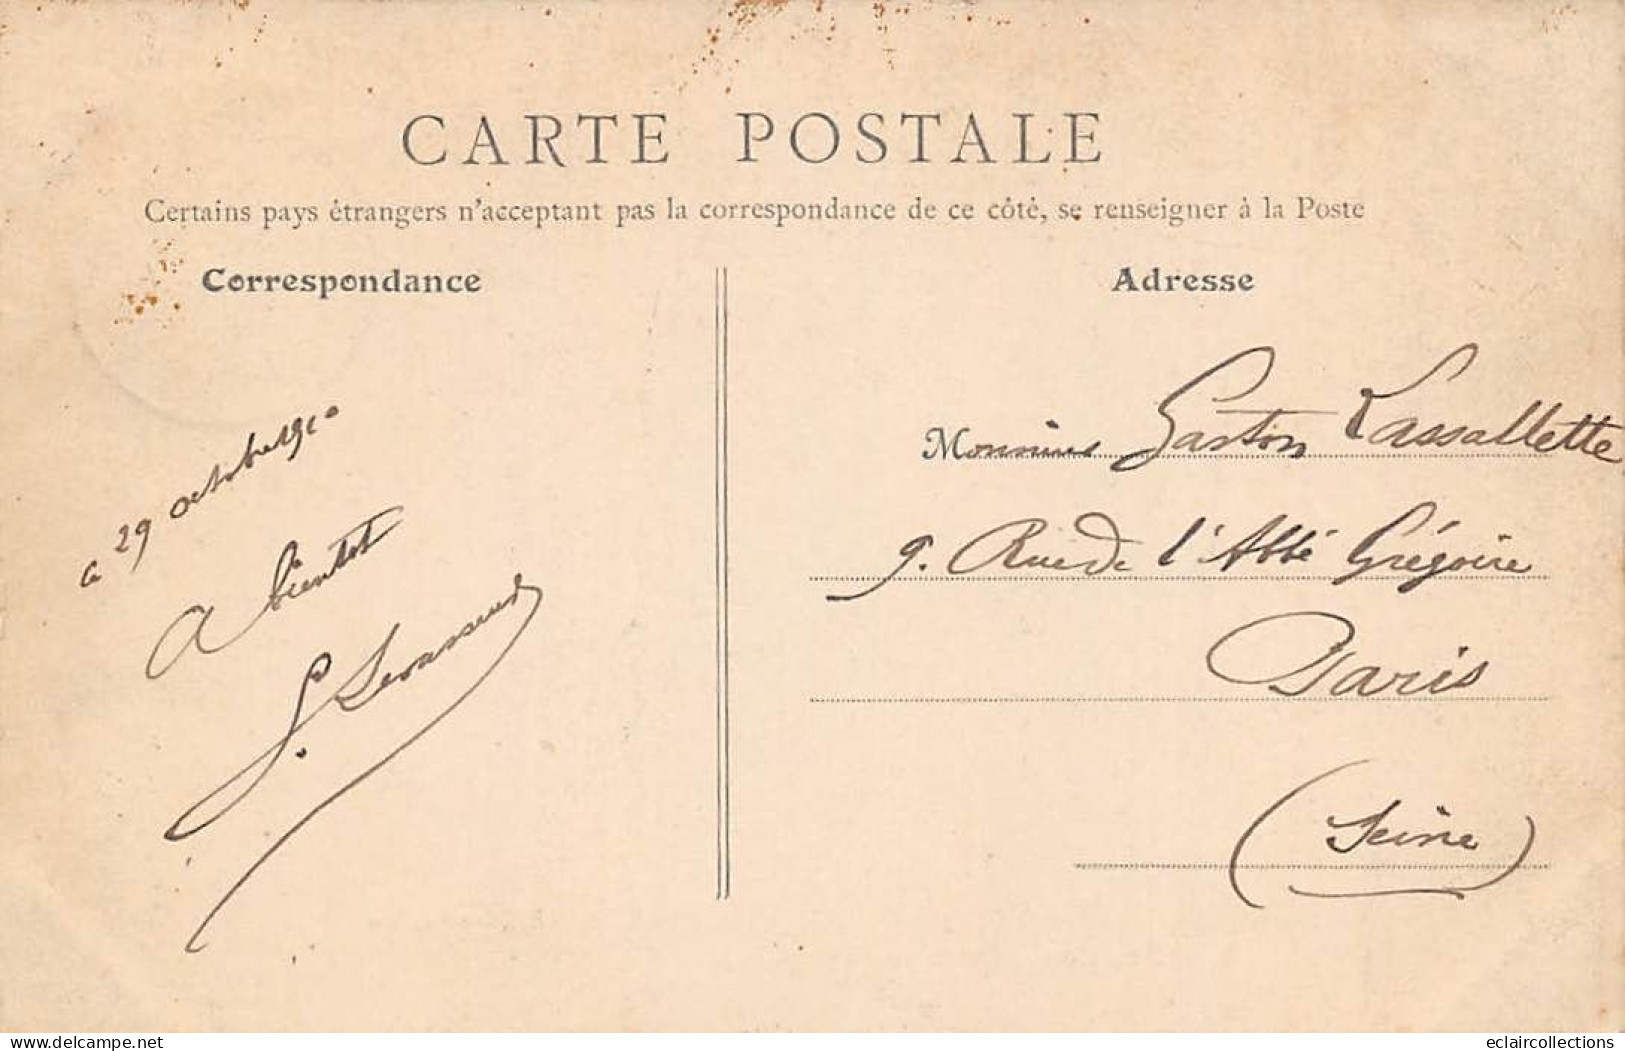 CARTE POSTALE
Certains pays étrangers n'acceptant pas la correspondance de ce côté, se renseigner à la Poste
Correspondance
29 octobre 1910
A bientot
Adresse
Monsieur Gaston Lassallette
9. Rue de l'Abbé Grégoire
Paris
(Seine)
www.delcampe.net
eclaircollections